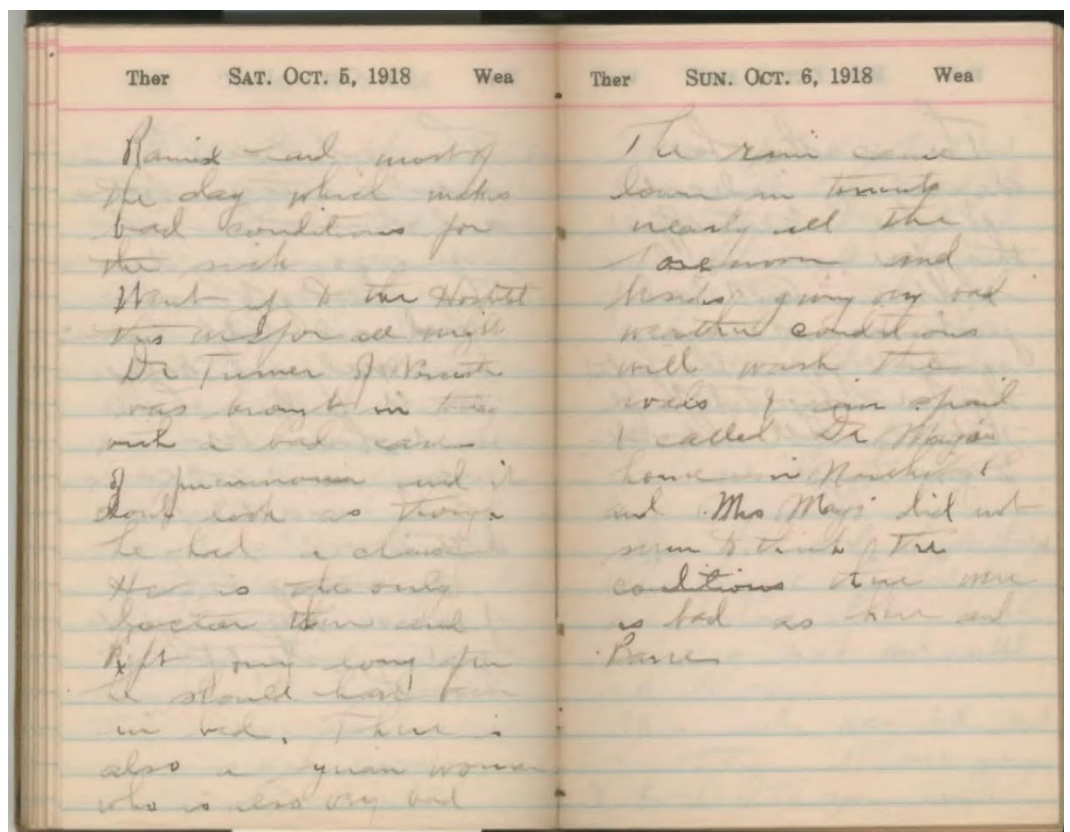 Ther SAT. OCT. 5, 1918 Wea
Rained hard most of
the day which makes
bad conditions for
the sick
Went up to the Hospital
this and for all night
Dr Turner of
was brought in today
with a bad case
of pneumonia and it
dont look as though
he had a chance
He is the only
doctor there and
kept long after
he should have been
in bad. There is
also a woman
who is also very bad
Ther SUN. OCT. 6, 1918 Wea
The rain came
down in torrents
nearly all the
forenoon and
besides giving very bad
weather conditions
will wash the
I called Dr Mays
home in
and Mrs Mays did not
seem to think the
conditions there were
as bad as here and
Barre